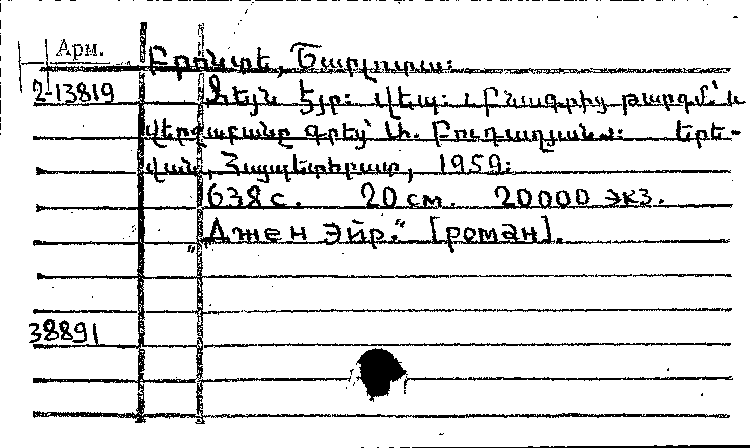 Арм.
Բրոնտե, Շառլոտա:
2-13819 Ջեյն Էյր: Վեպ: Բնագրից թարգմ. և
վերջաբանը գրեց՝ Ա. Բուդաղյանը: Երե-
վան, Հայպետհրատ, 1959:
638 с. 20 см. 20000 экз.
„Джен Эйр." [роман].
38891